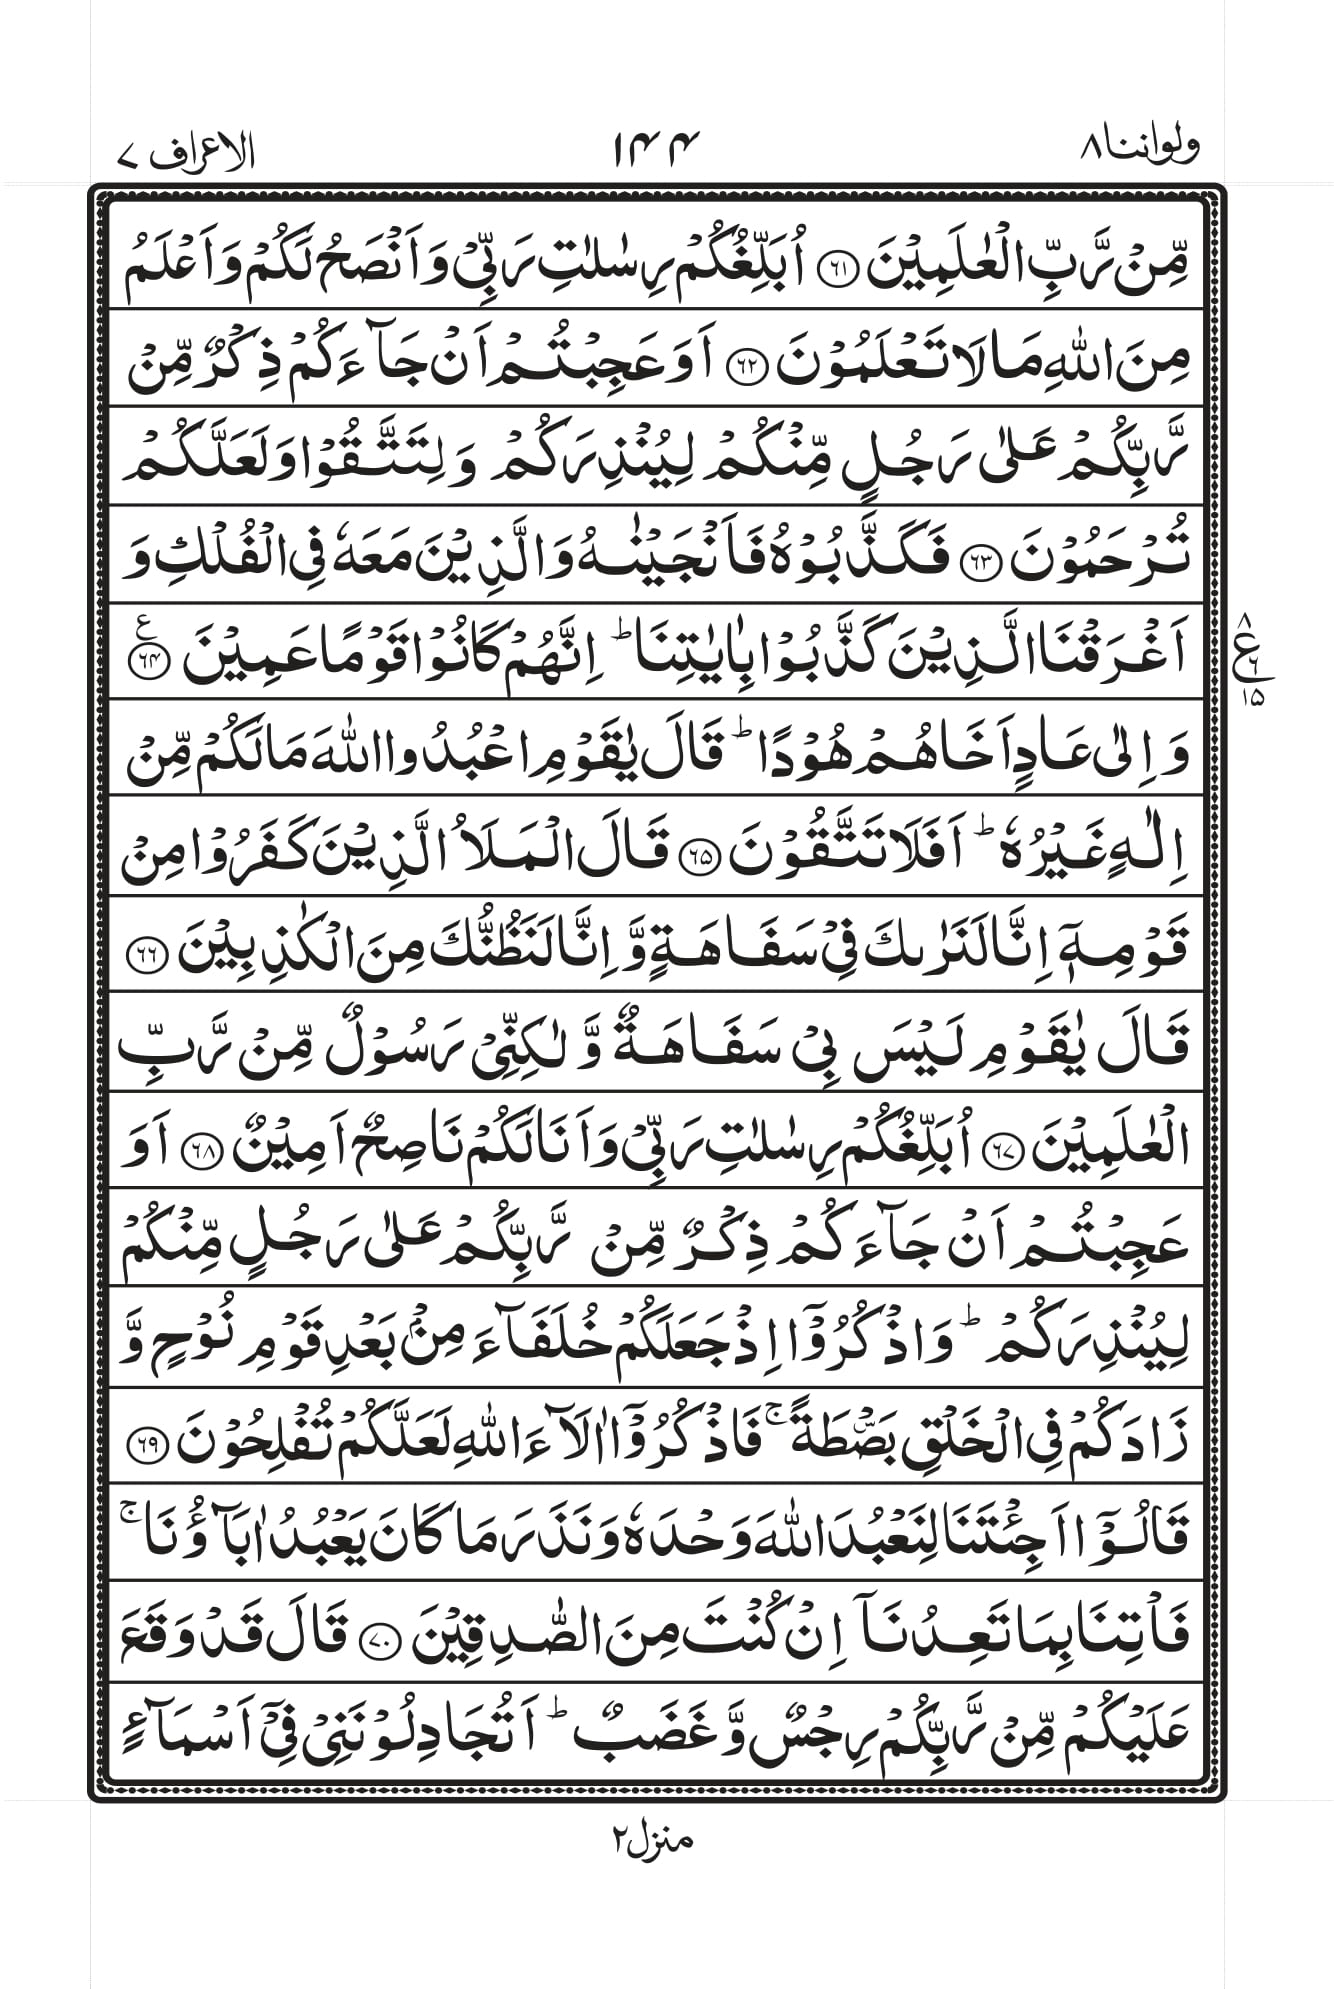 ولواننا ۸
۱۴۴
الاعراف ۷
مِّنْ رَّبِّ الْعٰلَمِیْنَ ﴿۶۱﴾ اُبَلِّغُكُمْ رِسٰلٰتِ رَبِّیْ وَاَنْصَحُ لَكُمْ وَاَعْلَمُ
مِنَ اللّٰهِ مَا لَا تَعْلَمُوْنَ ﴿۶۲﴾ اَوَعَجِبْتُمْ اَنْ جَآءَكُمْ ذِكْرٌ مِّنْ
رَّبِّكُمْ عَلٰی رَجُلٍ مِّنْكُمْ لِیُنْذِرَكُمْ وَلِتَتَّقُوْا وَلَعَلَّكُمْ
تُرْحَمُوْنَ ﴿۶۳﴾ فَكَذَّبُوْهُ فَاَنْجَیْنٰهُ وَالَّذِیْنَ مَعَهٗ فِی الْفُلْكِ وَ
اَغْرَقْنَا الَّذِیْنَ كَذَّبُوْا بِاٰیٰتِنَا ؕ اِنَّهُمْ كَانُوْا قَوْمًا عَمِیْنَ ﴿۶۴﴾ ع
۸
ع ۶
۱۵
وَاِلٰی عَادٍ اَخَاهُمْ هُوْدًا ؕ قَالَ یٰقَوْمِ اعْبُدُوا اللّٰهَ مَا لَكُمْ مِّنْ
اِلٰهٍ غَیْرُهٗ ؕ اَفَلَا تَتَّقُوْنَ ﴿۶۵﴾ قَالَ الْمَلَاُ الَّذِیْنَ كَفَرُوْا مِنْ
قَوْمِهٖۤ اِنَّا لَنَرٰىكَ فِیْ سَفَاهَةٍ وَّاِنَّا لَنَظُنُّكَ مِنَ الْكٰذِبِیْنَ ﴿۶۶﴾
قَالَ یٰقَوْمِ لَیْسَ بِیْ سَفَاهَةٌ وَّلٰكِنِّیْ رَسُوْلٌ مِّنْ رَّبِّ
الْعٰلَمِیْنَ ﴿۶۷﴾ اُبَلِّغُكُمْ رِسٰلٰتِ رَبِّیْ وَاَنَا لَكُمْ نَاصِحٌ اَمِیْنٌ ﴿۶۸﴾ اَوَ
عَجِبْتُمْ اَنْ جَآءَكُمْ ذِكْرٌ مِّنْ رَّبِّكُمْ عَلٰی رَجُلٍ مِّنْكُمْ
لِیُنْذِرَكُمْ ؕ وَاذْكُرُوْۤا اِذْ جَعَلَكُمْ خُلَفَآءَ مِنْۢ بَعْدِ قَوْمِ نُوْحٍ وَّ
زَادَكُمْ فِی الْخَلْقِ بَصْۜطَةً ۚ فَاذْكُرُوْۤا اٰلَآءَ اللّٰهِ لَعَلَّكُمْ تُفْلِحُوْنَ ﴿۶۹﴾
قَالُوْۤا اَجِئْتَنَا لِنَعْبُدَ اللّٰهَ وَحْدَهٗ وَنَذَرَ مَا كَانَ یَعْبُدُ اٰبَآؤُنَا ۚ
فَاْتِنَا بِمَا تَعِدُنَاۤ اِنْ كُنْتَ مِنَ الصّٰدِقِیْنَ ﴿۷۰﴾ قَالَ قَدْ وَقَعَ
عَلَیْكُمْ مِّنْ رَّبِّكُمْ رِجْسٌ وَّغَضَبٌ ؕ اَتُجَادِلُوْنَنِیْ فِیْۤ اَسْمَآءٍ
منزل ۲